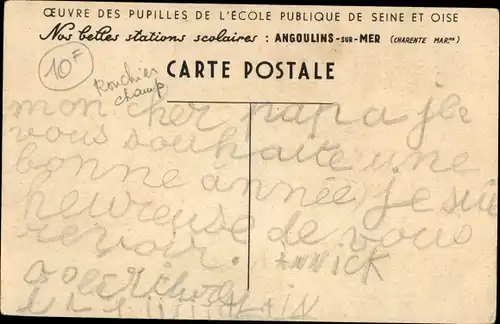 ŒUVRE DES PUPILLES DE L'ÉCOLE PUBLIQUE DE SEINE ET OISE
Nos belles stations scolaires : ANGOULINS-SUR-MER (CHARENTE MARme)
10F
CARTE POSTALE
champ
mon cher papa je
vous souhaite une
bonne année je suis
heureuse de vous
revoir.
ANNICK